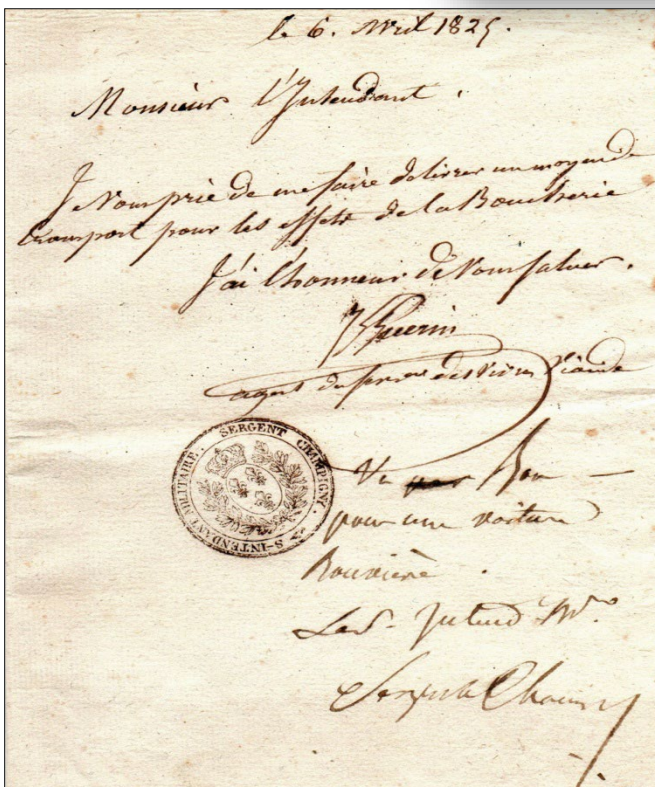 le 6. Avril 1825.
Monsieur l'Intendant.
Je Vous prie de me faire délivrer un moyen de
transport pour les effets de la Boucherie
J'ai l'honneur de Vous saluer.
Guerin
agent du service des Vivres Viande
SERGENT CHAMPIGNY. S-INTENDANT MILITAIRE.
Vu Bon
pour une voiture
Le S- Intend Mre
Sergent Champigny